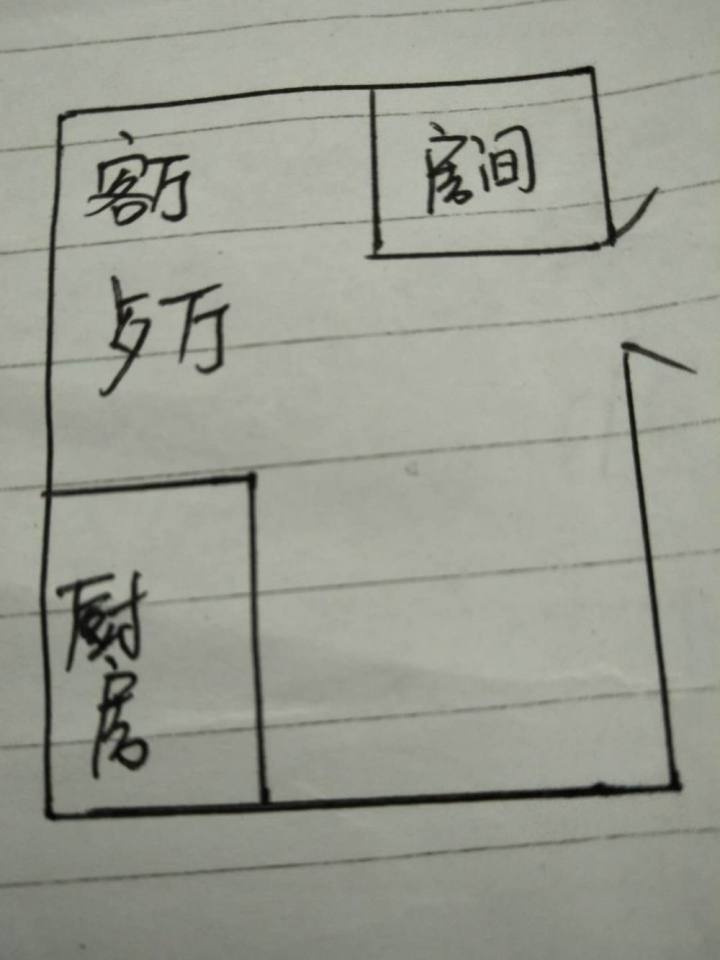 客厅
房间
歺厅
厨房